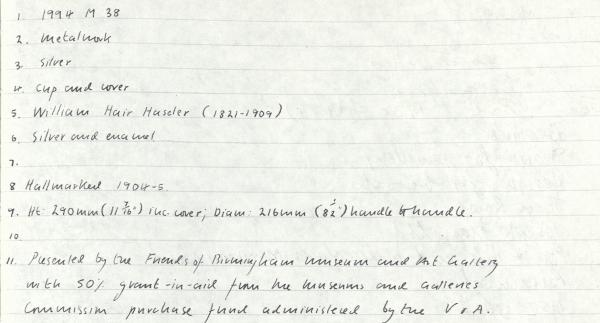 1. 1994 M 38
2. Metalwork
3. Silver
4. Cup and cover
5. William Hair Haseler (1821-1909)
6. Silver and enamel
7.
8 Hallmarked 1904-5.
9. Ht: 290mm (11 7/16") inc. cover; Diam: 216mm (8 1/2") handle to handle.
10.
11. Presented by the Friends of Birmingham Museum and Art Gallery
with 50% grant-in-aid from the Museums and Galleries
Commission purchase fund administered by the V & A.